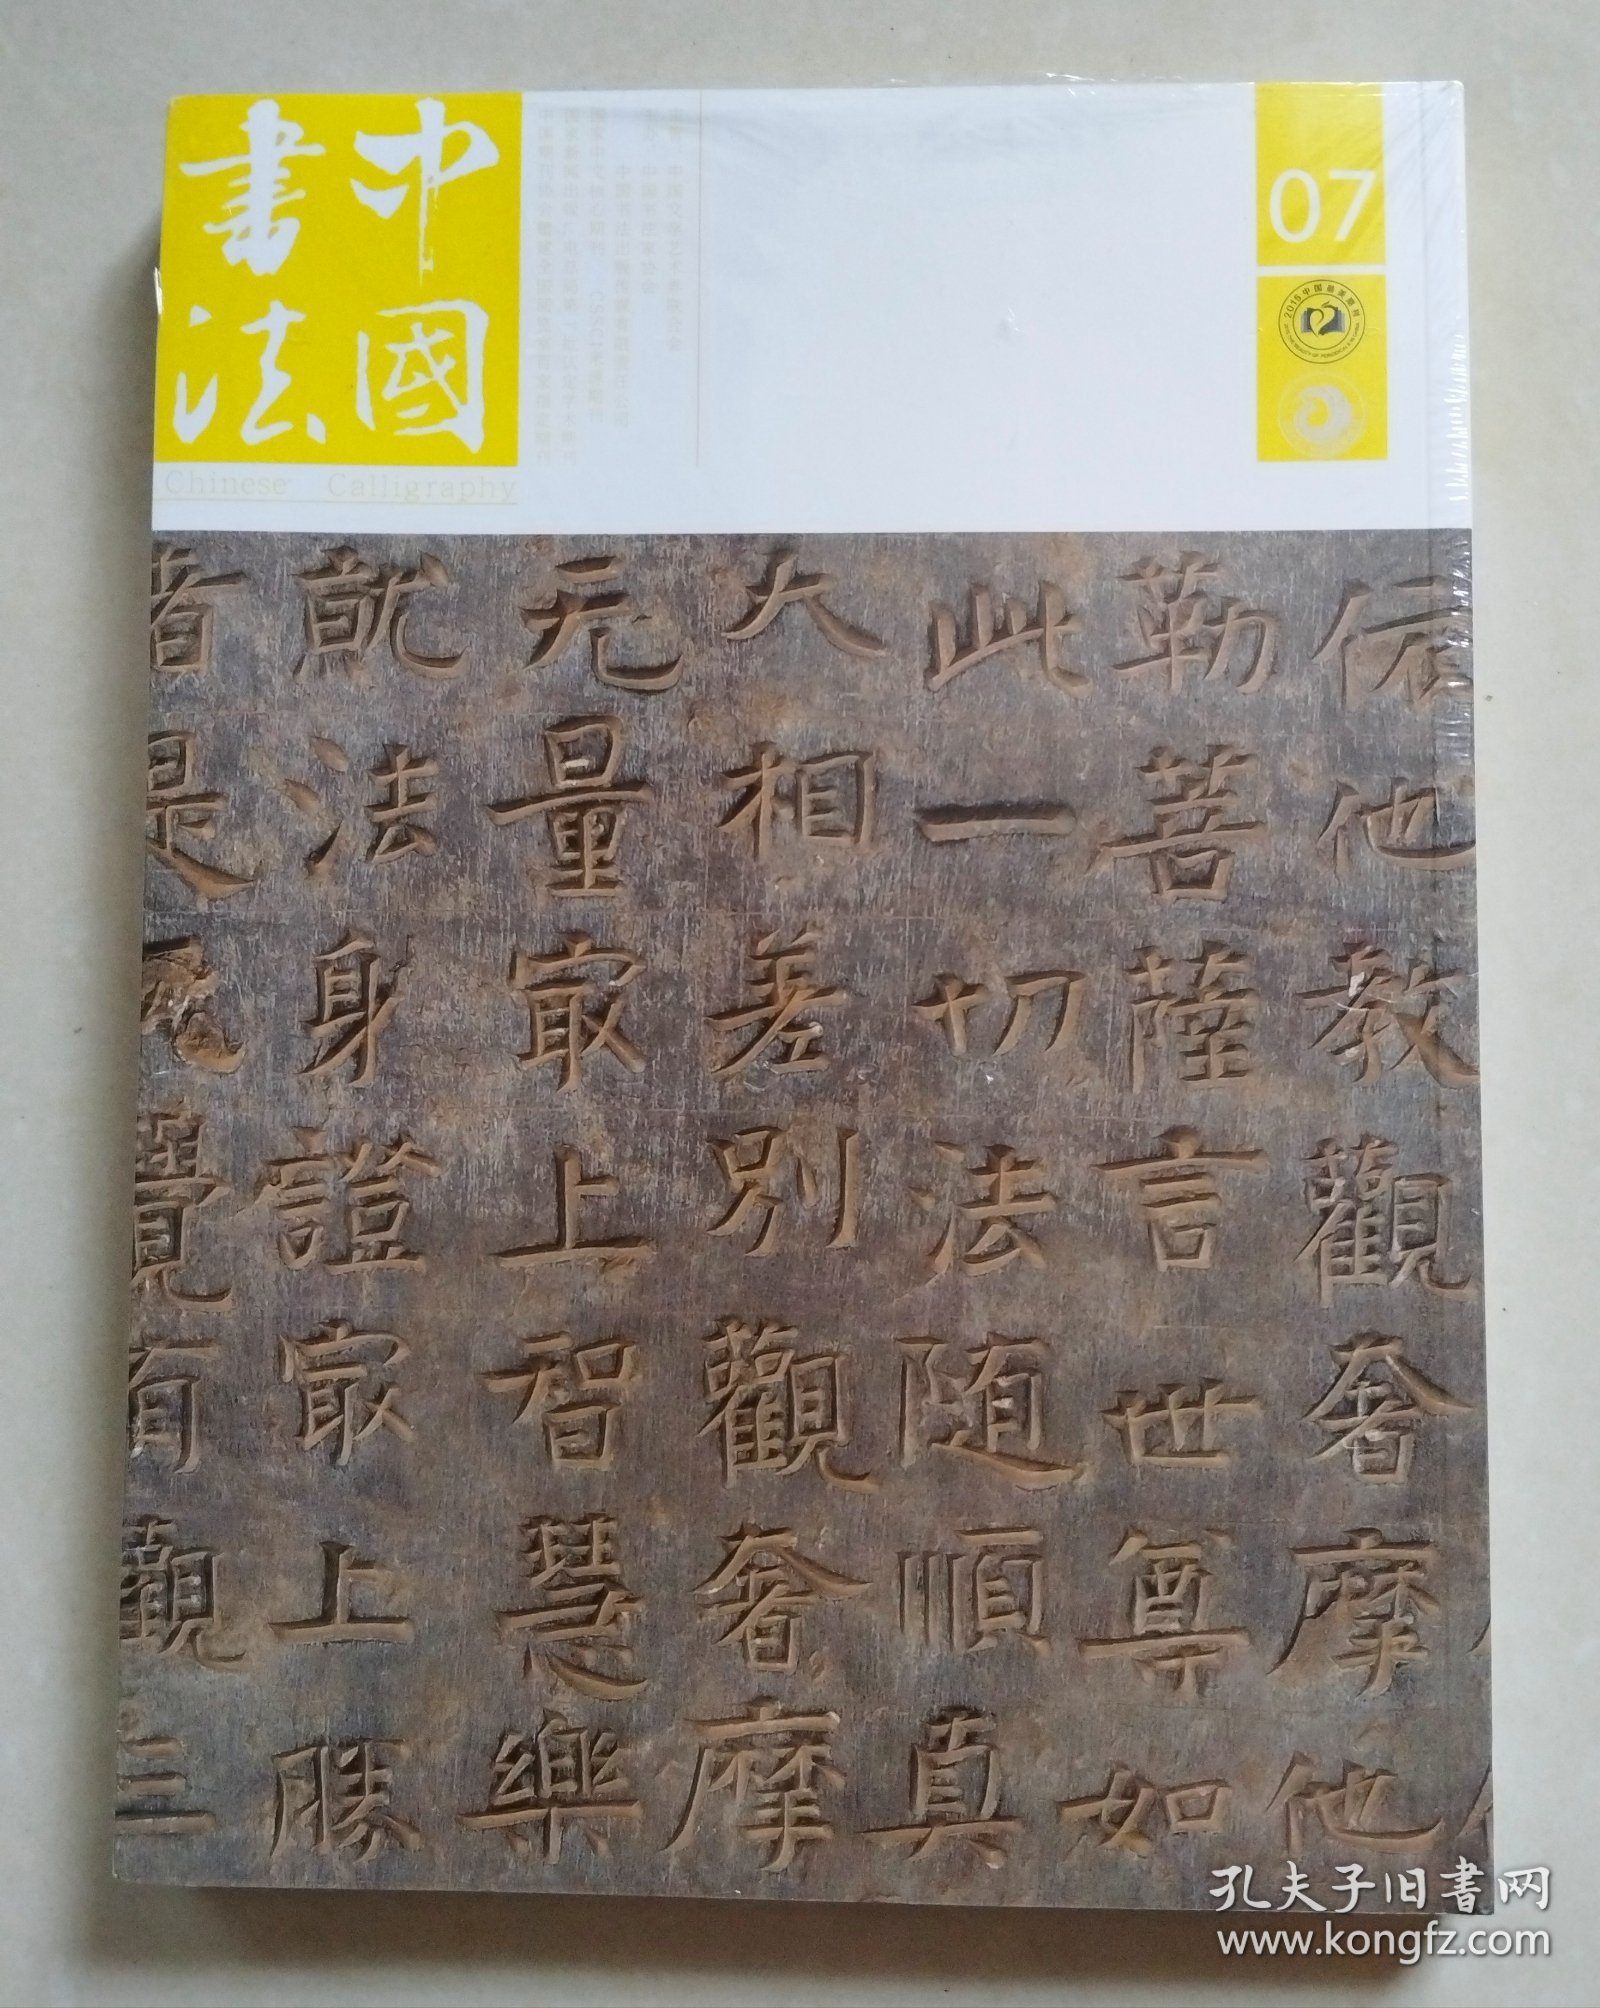 中國
書法
Chinese Calligraphy
中国文学艺术界联合会
中国书法家协会
中国书法出版传媒有限责任公司
07
2015中国最美期刊
依他教觀奢摩他
勒菩薩言世尊如
此一切法随順真
大相差別觀奢摩
无量冣上智慧樂
就法身證冣上勝
者是
覺有觀三
孔夫子旧书网
www.kongfz.com